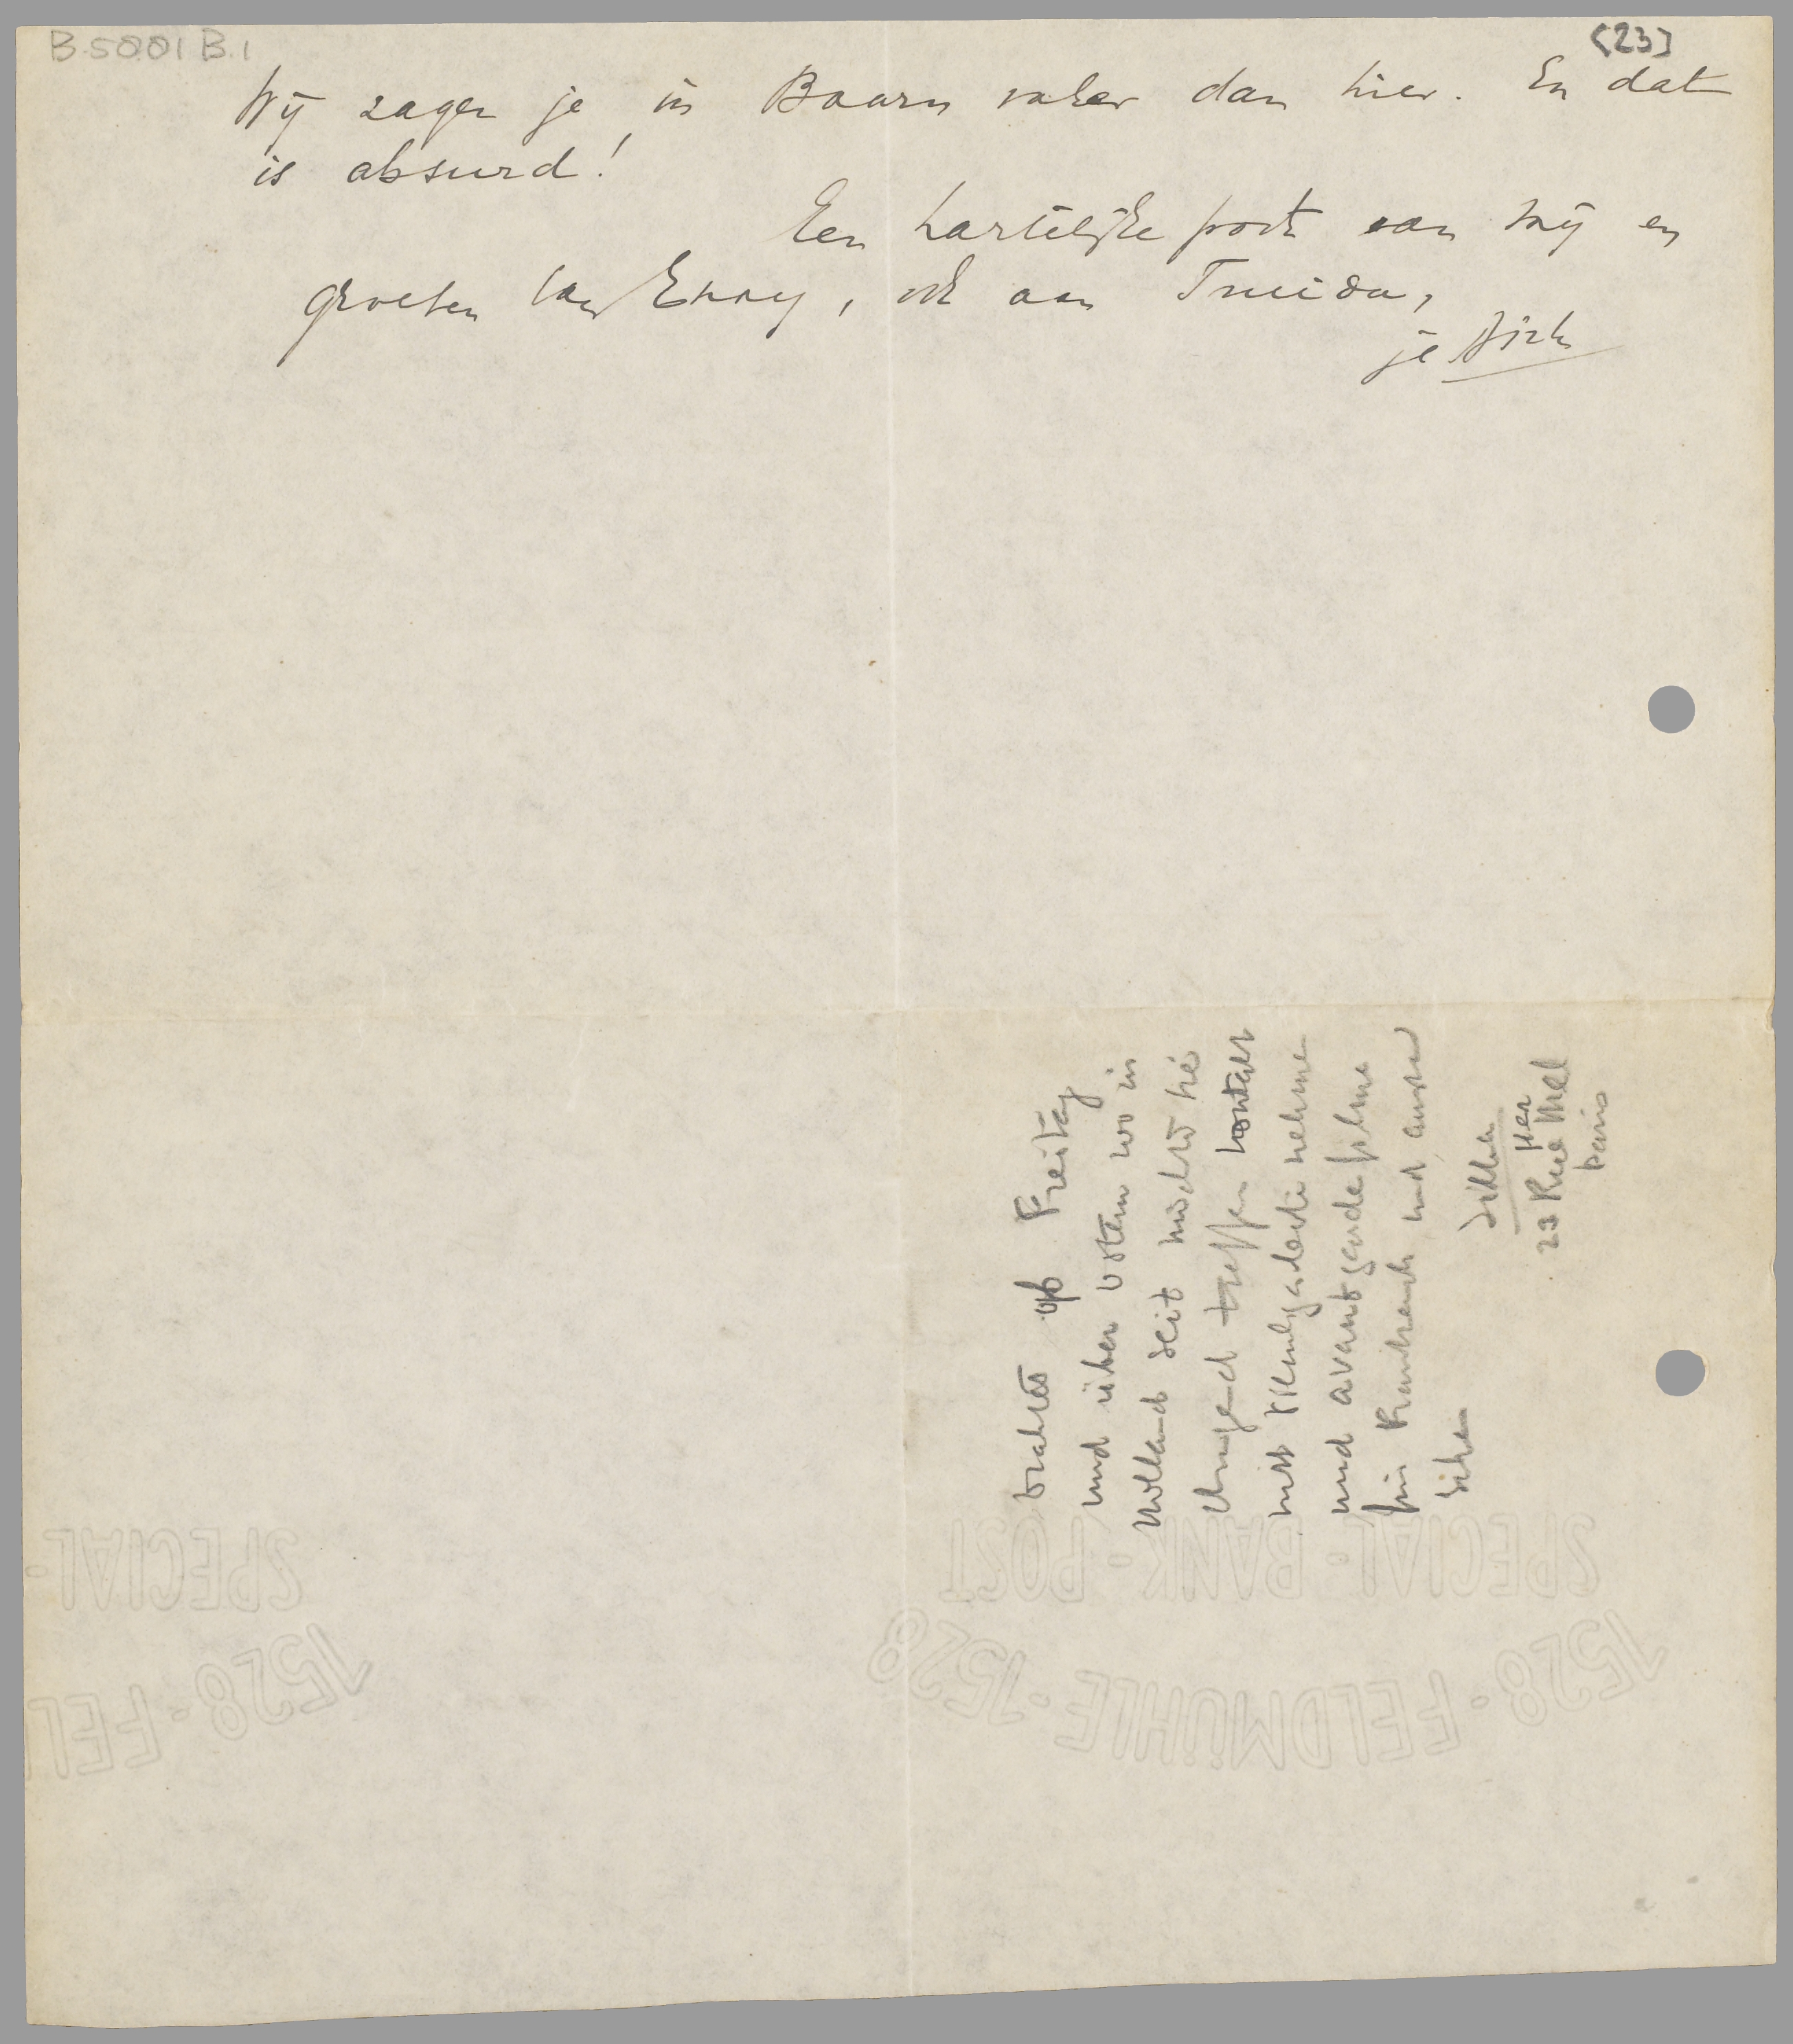 B.5001 B.1
(23)
Wij zagen je in Baarn vaker dan hier. En dat
is absurd!
Een hartelijke poot van mij en
groeten van Enny, ook aan Truida,
je Dirk
drahtet ob Freitag
und über ostern wo in
Holland seit möchte
dringend treffen kontakt
mit nehme
und avantgardefilme
für Frankreich und
sicher
23 Rue
Paris
SPECIAL-BANK-POST
1528-FELDMÜHLE-1528
SPECIAL-
1528-FEL